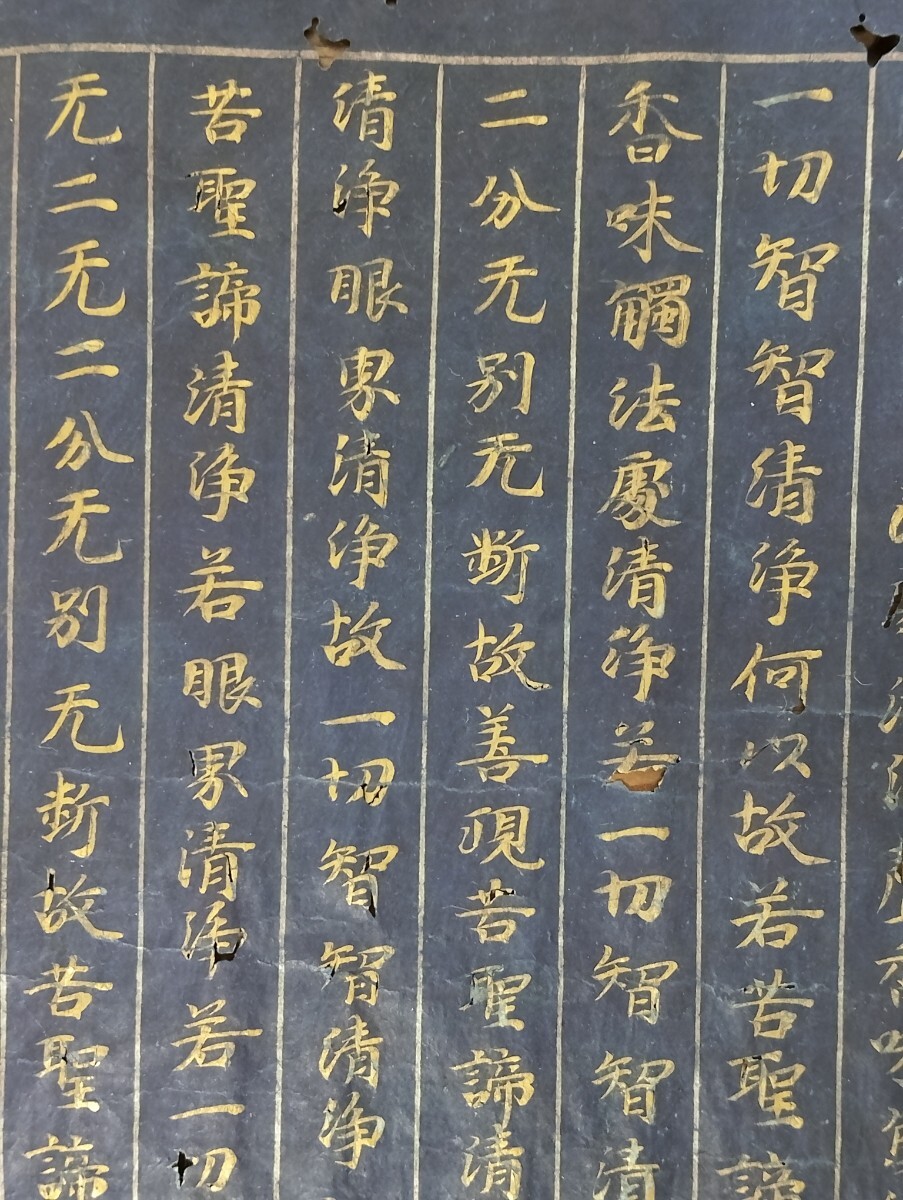 清淨聲香味
一切智智清淨何以故若苦聖諦
香味觸法處清淨若一切智智清
二分无別无斷故善現苦聖諦清
清淨眼界清淨故一切智智清淨
苦聖諦清淨若眼界清淨若一切
无二无二分无別无斷故苦聖諦